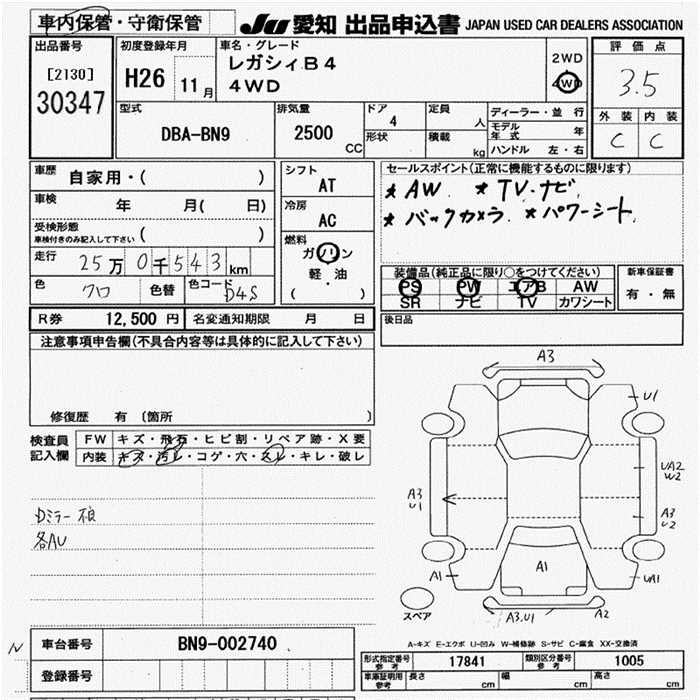 車内保管・守衛保管
JU 愛知 出品申込書 JAPAN USED CAR DEALERS ASSOCIATION
出品番号
[2130]
30347
初度登録年月
H26 11月
車名・グレード
レガシィB4
4WD
2WD
4WD
評価点
3.5
外装 内装
C C
型式
DBA-BN9
排気量
2500 CC
ドア
4
形状
定員
人
積載
kg
ディーラー・並行
モデル年式 年
ハンドル 左・右
車歴
自家用・( )
車検
年 月( 日)
受検形態
車検付きのみ記入して下さい ( )
走行
25万0千543km
色
クロ
色替
色コード
D4S
シフト
AT
冷房
AC
燃料
ガソリン
軽・油
( )
セールスポイント(正常に機能するものに限ります)
★AW. ★TV.ナビ
★バックカメラ. ★パワーシート.
装備品(純正品に限り○をつけてください)
PS PW エアB AW
SR ナビ TV カワシート
新車保証書
有・無
R券 12,500円 名変通知期限 月 日
後日品
注意事項申告欄(不具合内容等は具体的に記入して下さい)
修復歴 有 (箇所 )
検査員
記入欄
FW キズ・飛石・ヒビ割・リペア跡・X要
内装 キズ・汚レ・コゲ・穴・スレ・キレ・破レ
Dミラー不良
各AU
A3
U1
UA2
W2
A3
U1
A3
U2
A1
A1
UA1
A3.U1
A2
スペア
A-キズ E-エクボ U-凹み W-補修跡 S-サビ C-腐食 XX-交換済
N
車台番号 BN9-002740
登録番号
形式指定番号
参考
17841
類別区分番号
参考
1005
車庫証明用
参考
長さ cm 幅 cm 高さ cm